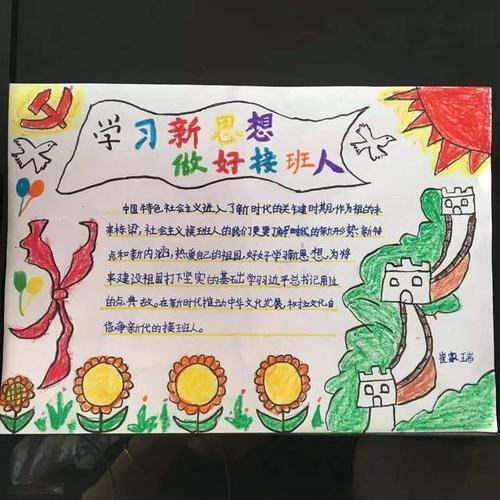 学习新思想
做好接班人
中国特色社会主义进入了新时代的关键时期,作为祖的未
来栋梁,社会主义接班人的我们更要了解时代的新形势新特
点和新内涵,热爱自己的祖国,好好学习新思想,为将
来建设祖国打下坚实的基础学习习近平总书记用过
的点典故。在新时代推动中华文化发展,树立文化自
信争新代的接班人。
崔瑞